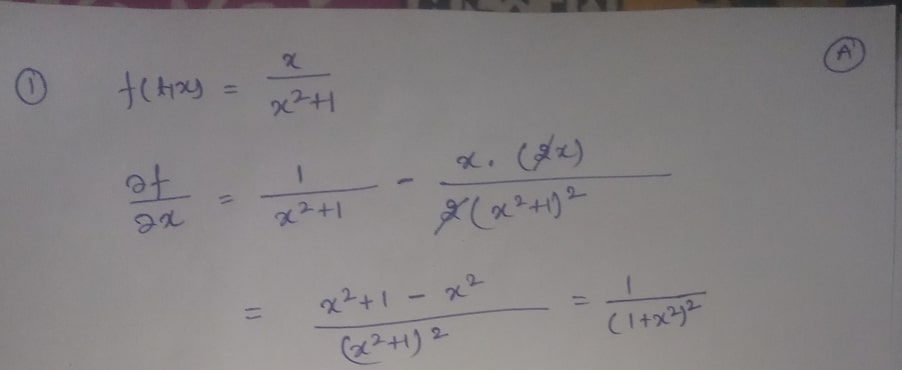 ① f(t,x) = x / x²+1 A'
∂f/∂x = 1 / x²+1 - x. (2x) / 2(x²+1)²
= x²+1 - x² / (x²+1)² = 1 / (1+x²)²